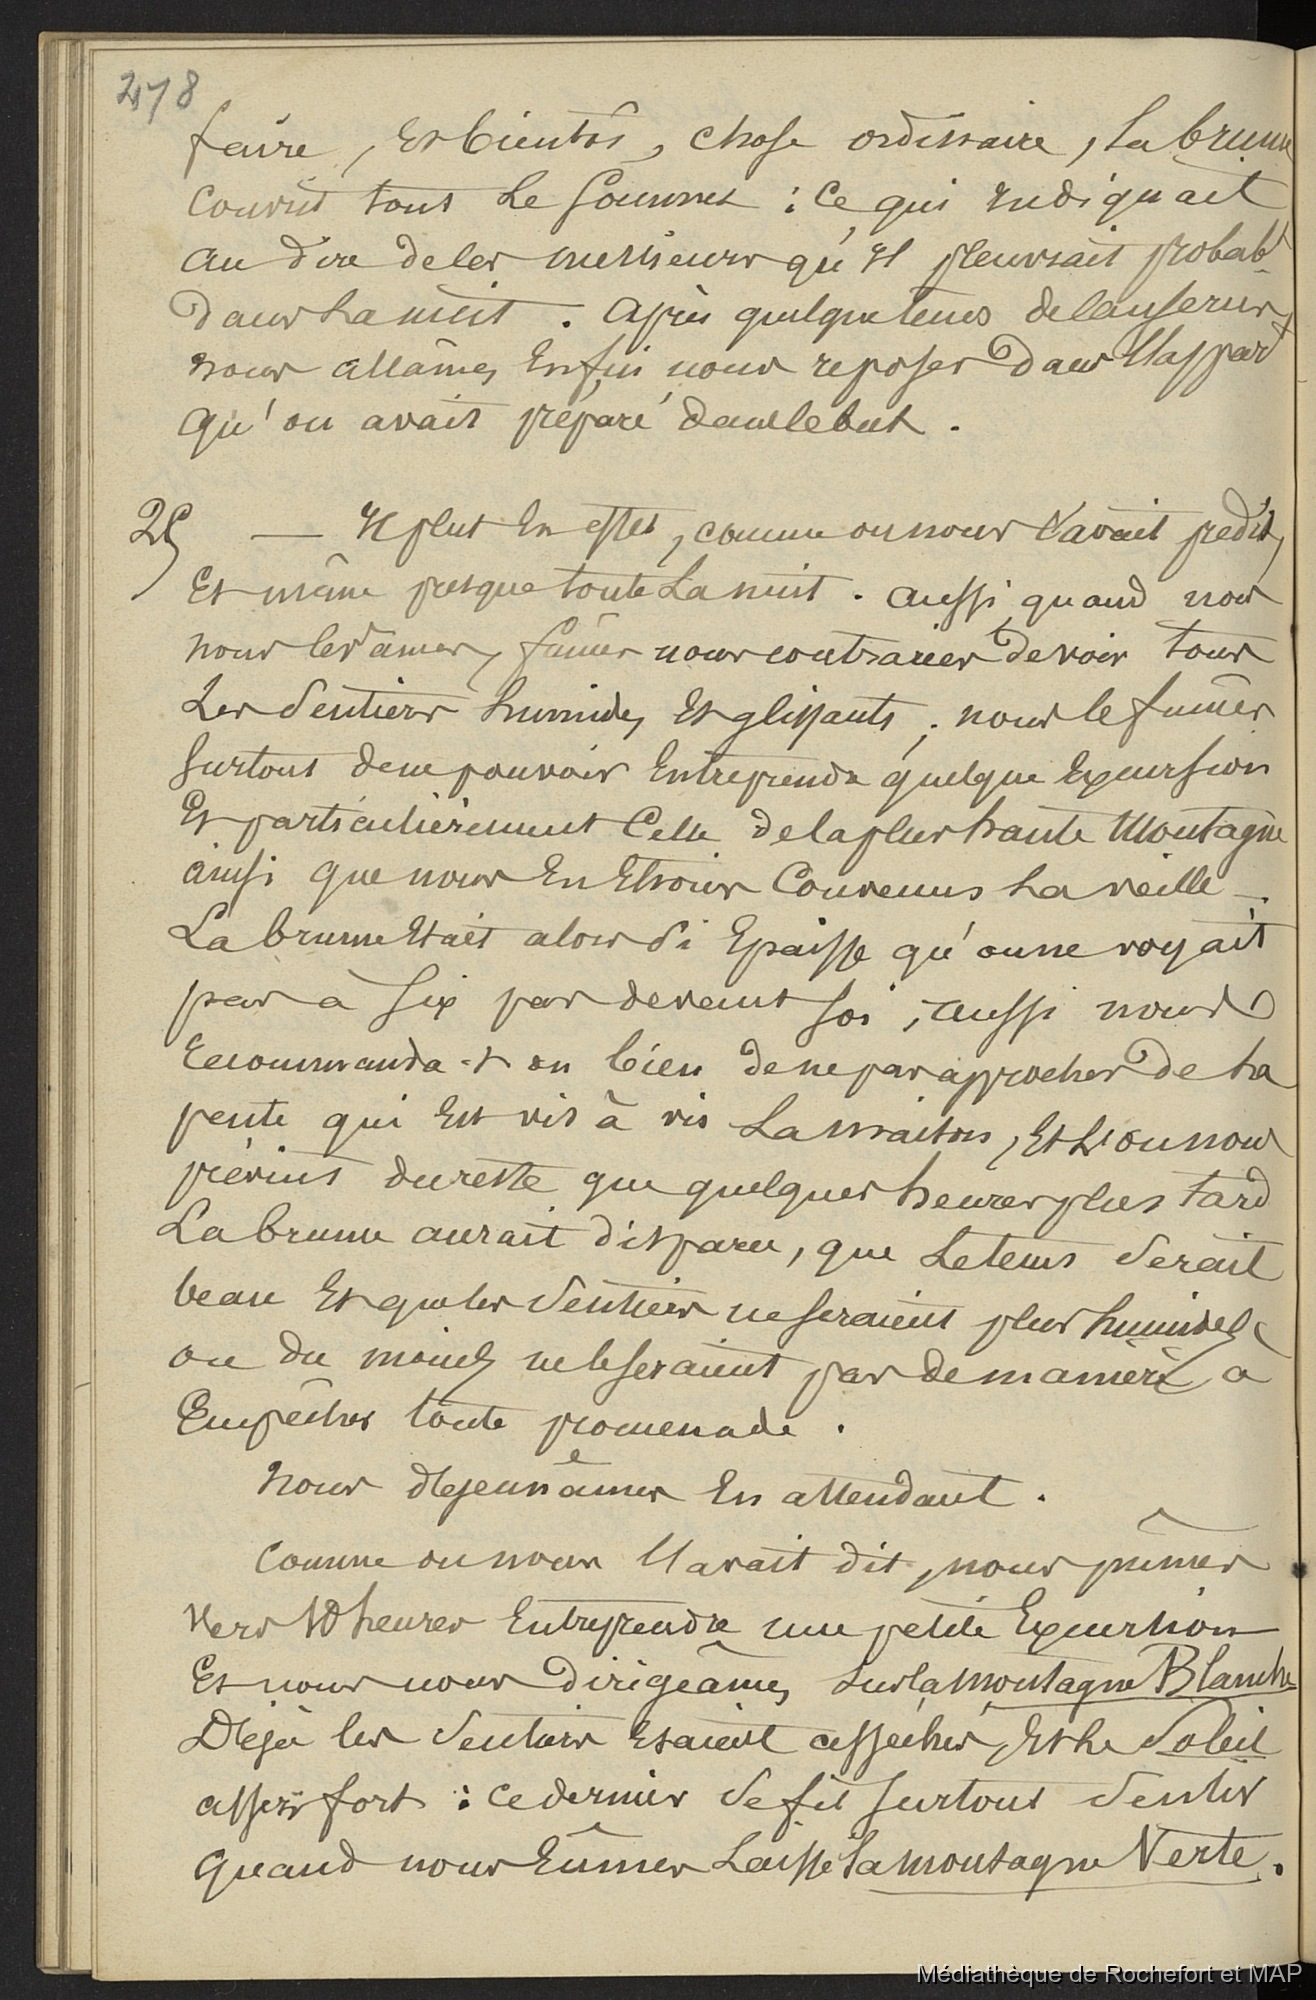 278
faire, et bientôt, chose ordinaire, la brume
couvrit tout le sommet : ce qui indiquait
au dire de ces messieurs qu'il pleuvrait probab^t
dans la nuit. Après quelque tems de causerie,
nous allâmes enfin nous reposer dans l'appar^t
qu'on avait préparé dans le but.
25 — Il plut en effet, comme on nous l'avait prédit,
et même presque toute la nuit. Aussi quand nous
nous levâmes, fûmes nous contrariés de voir tous
les sentiers humides et glissants ; nous le fûmes
surtout de ne pouvoir entreprendre quelque excursion
et particulièrement celle de la plus haute montagne
ainsi que nous en étions convenus la veille —.
La brume était alors si épaisse qu'on ne voyait
pas à six pas devant soi, aussi nous
recommanda-t-on bien de ne pas approcher de la
pente qui est vis à vis la maison, et l'on nous
prévint du reste que quelques heures plus tard
la brume aurait disparu, que le tems serait
beau et que les sentiers ne seraient plus humides
ou du moins ne le seraient pas de manière à
empêcher toute promenade.
Nous déjeunâmes en attendant.
Comme on nous l'avait dit, nous pûmes
vers 10 heures entreprendre une petite excursion
et nous nous dirigeâmes sur la montagne Blanche
Déjà les sentiers étaient asséchés, et le soleil
assez fort : ce dernier se fit surtout sentir
quand nous eûmes laissé la montagne Verte.
Médiathèque de Rochefort et MAP